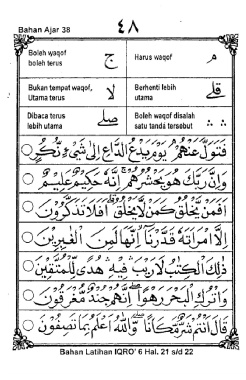 Bahan Ajar 38
٤٨
Boleh waqof boleh terus ج Harus waqof م
Bukan tempat waqof, Utama terus لا Berhenti lebih utama قلے
Dibaca terus lebih utama صلے Boleh waqof disalah satu tanda tersebut ∴ ∴
فَتَوَلَّ عَنْهُمْ ۘ يَوْمَ يَدْعُ الدَّاعِ إِلَى شَيْءٍ نُكُرٍ
وَإِنَّ رَبَّكَ هُوَ يَحْشُرُهُمْ ۗ إِنَّهُ حَكِيمٌ عَلِيمٌ
أَفَمَنْ يَخْلُقُ كَمَنْ لَا يَخْلُقُ ۗ أَفَلَا تَذَكَّرُونَ
إِلَّا امْرَأَتَهُ قَدَّرْنَا ۙ إِنَّهَا لَمِنَ الْغٰبِرِينَ
ذٰلِكَ الْكِتٰبُ لَا رَيْبَ ۛ فِيهِ ۛ هُدًى لِلْمُتَّقِينَ
وَاتْرُكِ الْبَحْرَ رَهْوًا ۗ إِنَّهُمْ جُنْدٌ مُغْرَقُونَ
قَالَ أَنْتُمْ شَرٌّ مَكَانًا ۚ وَاللّٰهُ أَعْلَمُ بِمَا تَصِفُونَ
Bahan Latihan IQRO' 6 Hal. 21 s/d 22